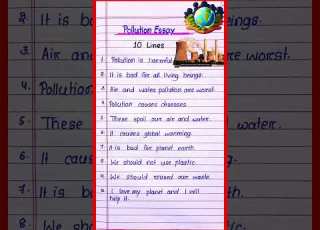 Pollution Essay
10 Lines
1. Pollution is harmful
2. It is bad for all living beings.
3. Air and water pollution are worst.
4. Pollution causes diseases.
5. These spoil our air and water.
6. It causes global warming.
7. It is bad for planet earth.
8. We should not use plastic.
9. We should reuse our waste.
10. I love my planet and I will
help it.